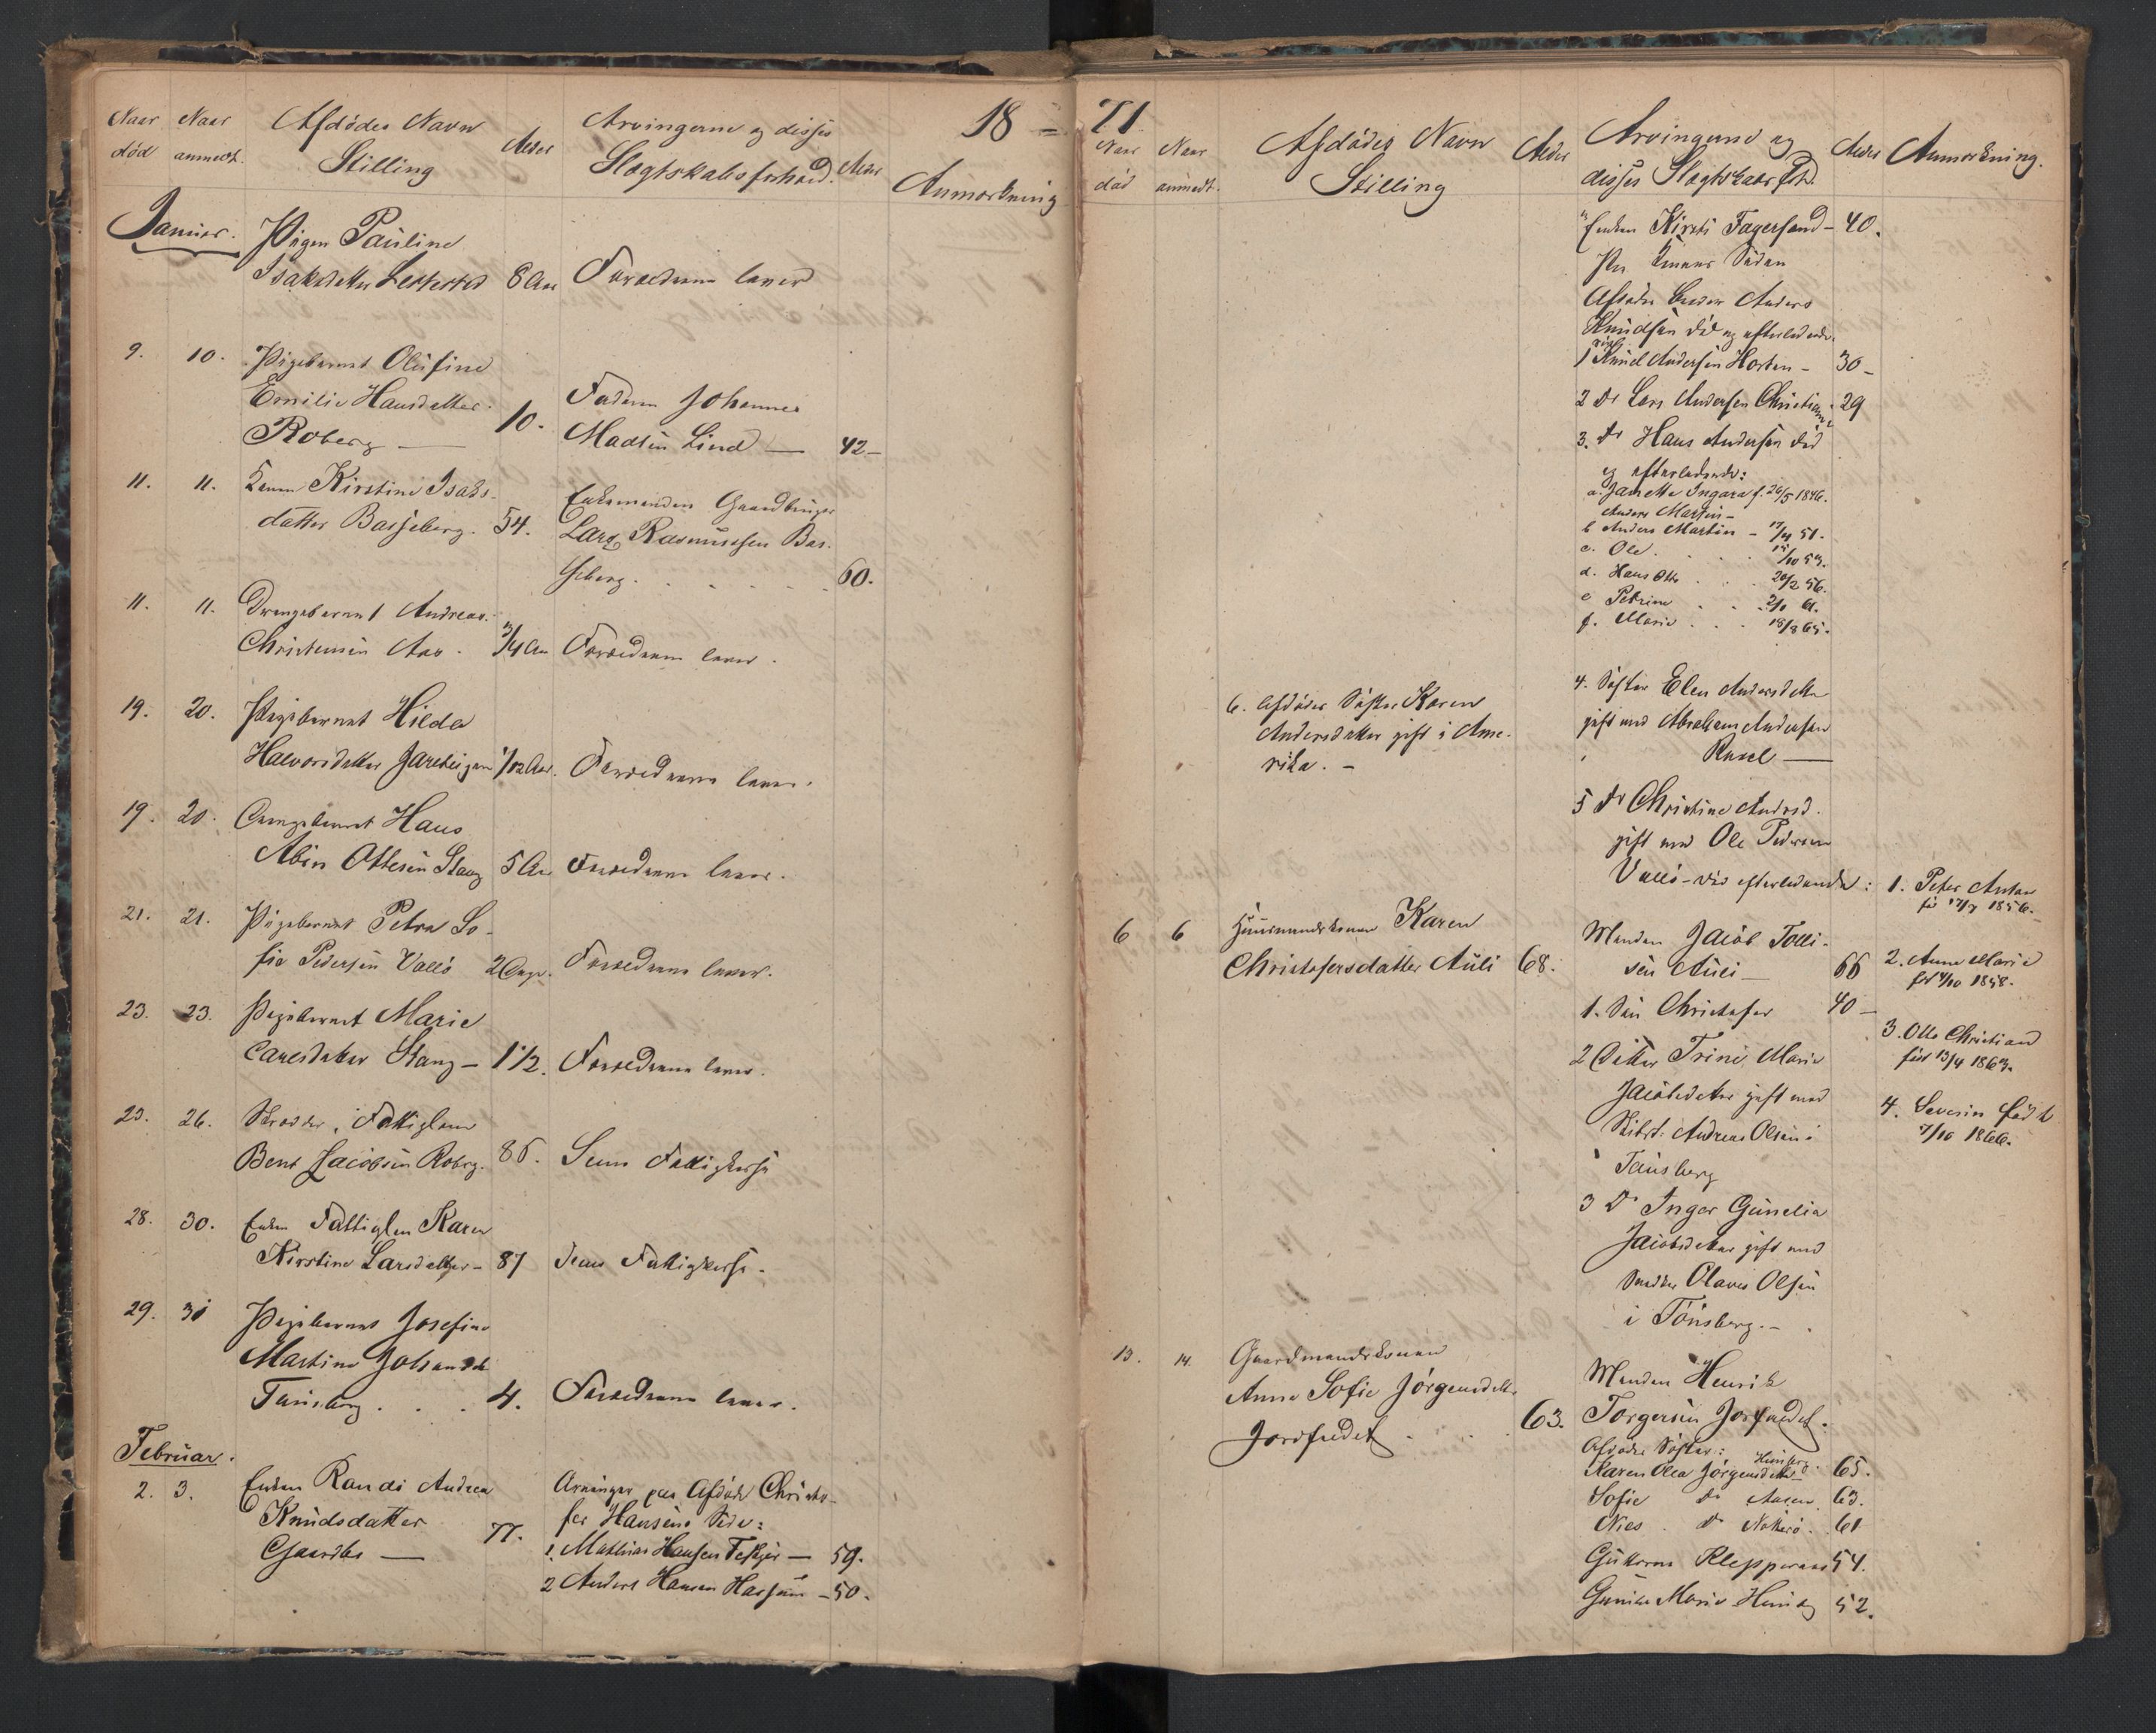 18 = 71
Naar død
Naar anmeldt.
Afdødes Navn
Stilling
Alder
Arvingerne og disses
Slægtskabsforhold.
Alder
Anmærkning
Januar.
Pigen Pauline
Isaksdatter 8 Aar Forældrene lever
9. 10. Pigebarnet Olufine
Emilie Hansdatter
Roberg — 10.
Faderen Johannes
Madsen Lind — 42 –
11. 11. Konen Kirstine Isaks-
datter Basseberg. 54.
Enkemanden Gaardbruger
Lars Rasmussen Bas-
seberg. 60.
11. 11. Drengebarnet Andreas
Christensen Aas. 3/4 Aar Forældrene lever.
19. 20. Pigebarnet Hilda
Halvorsdatter 1/12 Aar. Forældrene lever.
19. 20. Drengebarnet Hans
Albin Ottesen Stang 5 Aar Forældrene lever.
21. 21. Pigebarnet Petra So-
fie Pedersen Vallø 2 Dage. Forældrene lever.
23. 23. Pigebarnet Marie
Carlsdatter Stang – 1 1/2. Forældrene lever.
25. 26. Skrædder, Fattiglem
Bent Jacobsen Roberg. 86. Sem Fattigkasse
28. 30. Enken Fattiglem Karen
Kirstine Larsdatter – 87 Sems Fattigkasse.
29. 31 Pigebarnet Josefine
Martine Johansdt
Tønsberg . . . 4. Forældrene lever.
Februar.
2. 3. Enken Randi Andrea
Knudsdatter
77.
Arvinger paa Afdøde Christo-
fer Hansens Side:
1. Mathias Hansen — 59.
2 Anders Hansen – 50.
Naar død
Naar anmeldt.
Afdødes Navn
Stilling
Alder
Arvingerne og
disses Slægtskabs Fh.
Alder
Anmærkning.
Enken Kirsti Fagersand – 40.
Paa Konens Siden
Afdødes Broder Anders
Knudsen død og efterladende
1 Knud Andersen Horten – 30 –
2 Do Lars Andersen Christiania 29
3. Do Hans Andersen død
og efterladende:
a. Janette Ingara f. 26/5 1846.
Anders Martin –
b Anders Martin – 51.
c. Ole. . . 15/10 53.
d. Hans Otto . . 20/2 56.
e Petrine . . 61.
f. Marie . . . 18/8 65.
4. Søster Elen Andersdatter
gift med Abraham Andersen
6. Afdødes Søster Karen
Andersdatter gift i Ame-
rika. –
5 Do Christine Andersd.
gift med Ole Pedersen
Vallø – død efterladende:
1. Peter Anton
fø 17/7 1856.
2. Anne Marie
fød 4/10 1858.
3. Otto Christian
født 13/4 1863.
4. Severin født
7/10 1866.
6 6 Huusmandskonen Karen
Christofersdatter Auli 68.
Manden Jacob Tolli-
sen Auli — 66
1. Søn Christofer 40 –
2 Datter Trine Marie
Jacobsdatter gift med
Skibst: Andreas Olsen i
Tønsberg
3 Do Inger Gunelia
Jacobsdatter gift med
Snedker Olaves Olsen
i Tønsberg. –
13. 14. Gaardmandskonen
Anne Sofie Jørgensdatter
63.
Manden Henrik
Torgersen
Afdødes Søster:
Karen Olea Jørgensdatter 65.
Sofie Do Aasen. 63.
Nies. Do Nøtterø. 61
54.
Marie 52.